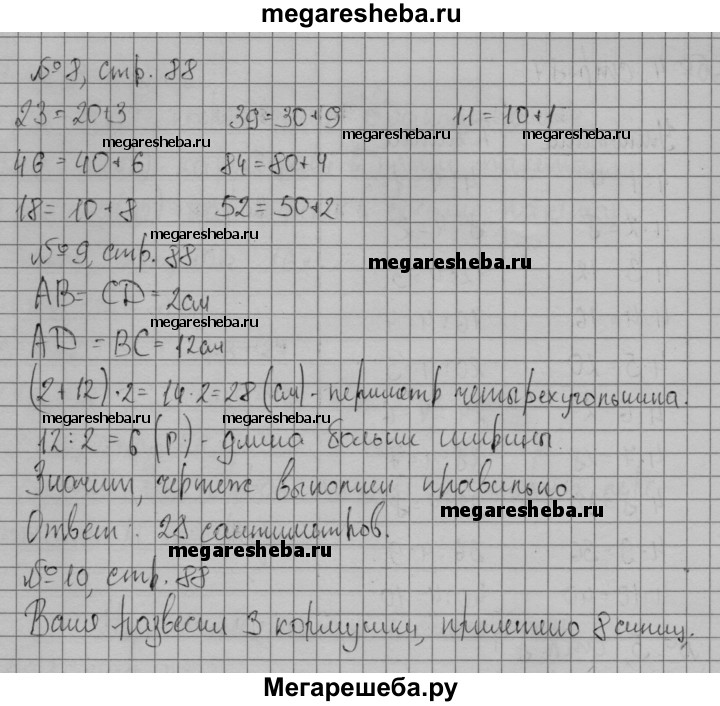 megaresheba.ru
№8, стр. 88
23 = 20+3 39 = 30+9 11 = 10+1
megaresheba.ru megaresheba.ru megaresheba.ru
46 = 40+6 84 = 80+4
18 = 10+8 52 = 50+2
megaresheba.ru
№9, стр. 88
megaresheba.ru
AB = CD = 2см
megaresheba.ru
AD = BC = 12см
(2+12)·2 = 14·2 = 28 (см) - периметр четырехугольника.
megaresheba.ru megaresheba.ru megaresheba.ru
12:2 = 6 (р.) - длина больше ширины.
Значит, чертеж выполнен правильно.
megaresheba.ru
Ответ: 28 сантиметров.
megaresheba.ru
№10, стр. 88
Ваня развесил 3 кормушки, прилетело 8 синиц.
Мегарешеба.ру